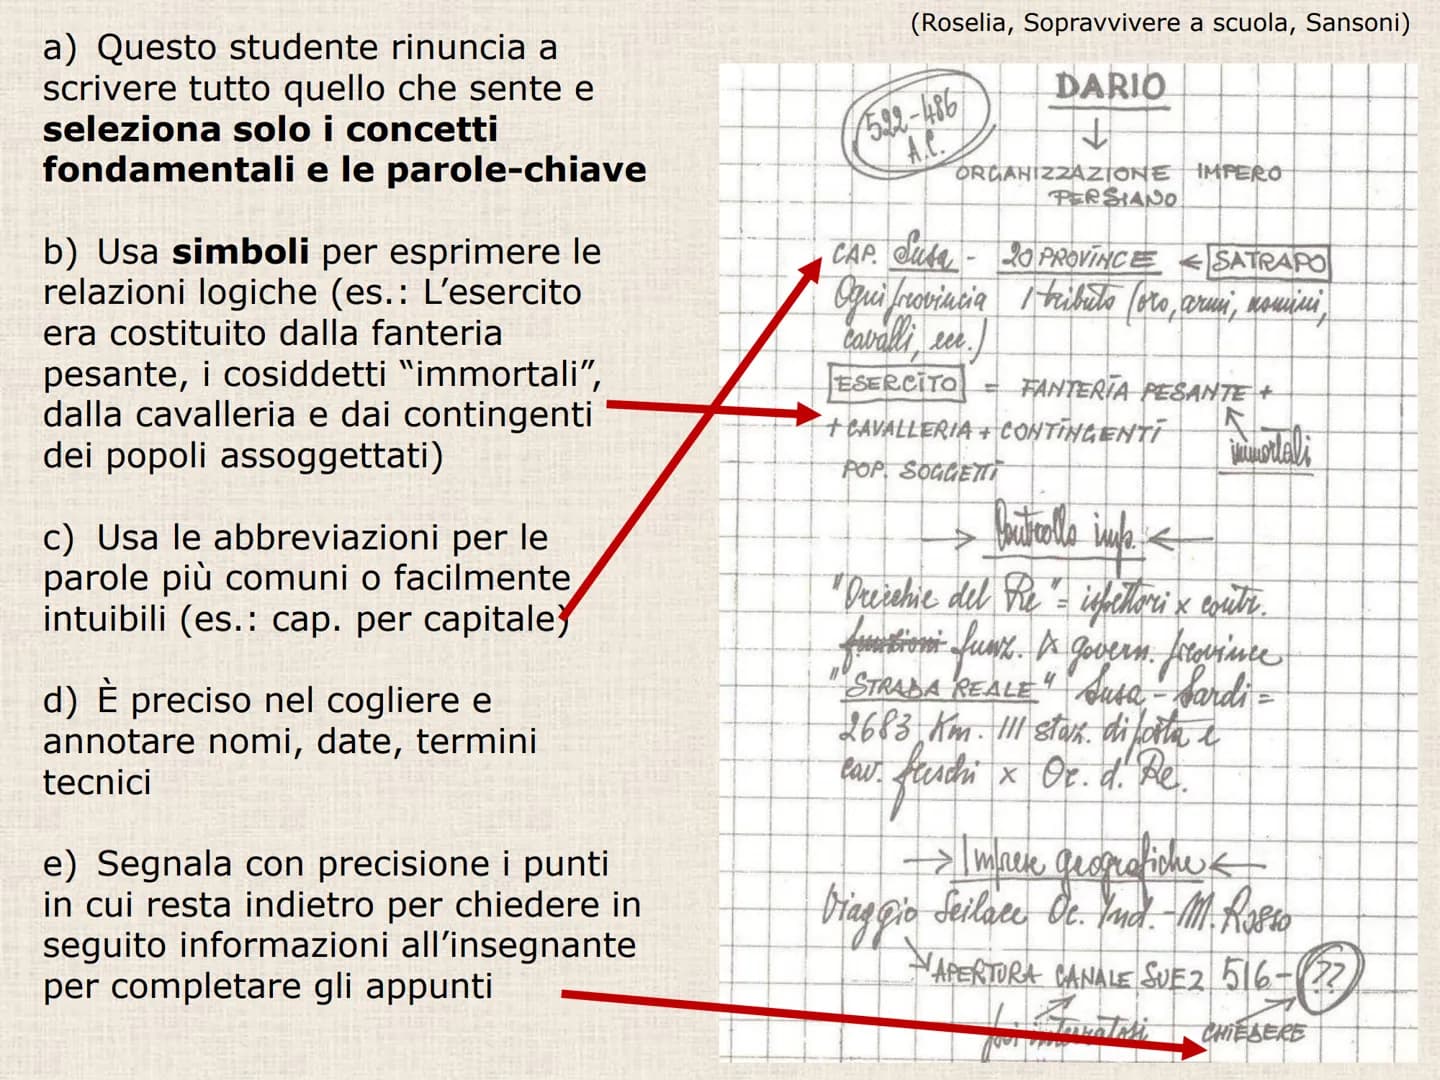 (Roselia, Sopravvivere a scuola, Sansoni)
a) Questo studente rinuncia a
scrivere tutto quello che sente e
seleziona solo i concetti
fondamentali e le parole-chiave
b) Usa simboli per esprimere le
relazioni logiche (es.: L’esercito
era costituito dalla fanteria
pesante, i cosiddetti “immortali”,
dalla cavalleria e dai contingenti
dei popoli assoggettati)
c) Usa le abbreviazioni per le
parole più comuni o facilmente
intuibili (es.: cap. per capitale)
d) È preciso nel cogliere e
annotare nomi, date, termini
tecnici
e) Segnala con precisione i punti
in cui resta indietro per chiedere in
seguito informazioni all’insegnante
per completare gli appunti
DARIO
522-486
A.C.
ORGANIZZAZIONE IMPERO
PERSIANO
CAP. Susa - 20 PROVINCE ← SATRAPO
Ogni provincia 1 tributo (oro, armi, uomini,
cavalli, ecc.)
ESERCITO = FANTERIA PESANTE +
+ CAVALLERIA + CONTINGENTI
immortali
POP. SOGGETTI
→ Controllo imp. ←
"Orecchie del Re" = ispettori x contr.
funzioni funz. govern. province
"STRADA REALE" Susa - Sardi =
2683 Km. 111 staz. di posta e
cav. freschi x Or. d. Re.
→ Imprese geografiche ←
Viaggio Scilace Oc. Ind. - M. Rosso
APERTURA CANALE SUEZ 516 - ??
poi interratosi CHIEDERE